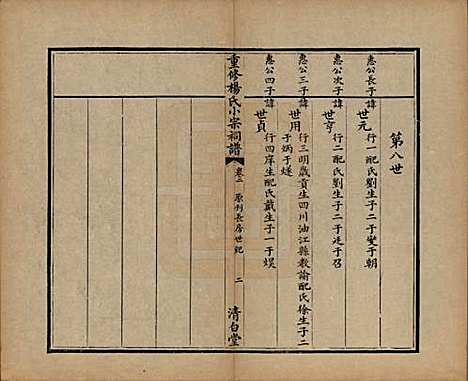 第八世
惠公長子諱
世元 行一配氏劉生子二于燮于朝
惠公次子諱
世亨 行二配氏劉生子二于廷于召
惠公三子諱
世用 行三明歲貢生四川油江縣教諭配氏徐生子二于炳于燧
惠公四子諱
世貞 行四庠生配氏戴生子一于娛
重修楊氏小宗祠譜 卷二 原刊長房世紀 二 清白堂